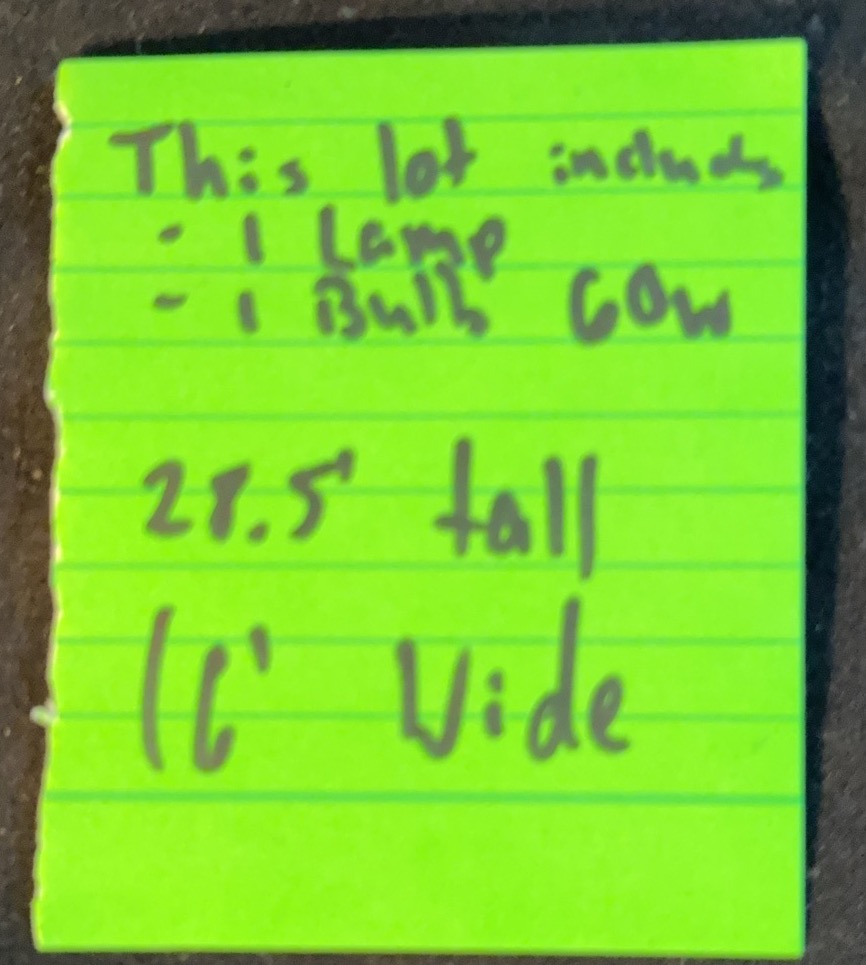 This lot includs
- 1 Lamp
- 1 Bulb 60w
28.5' tall
16' Wide